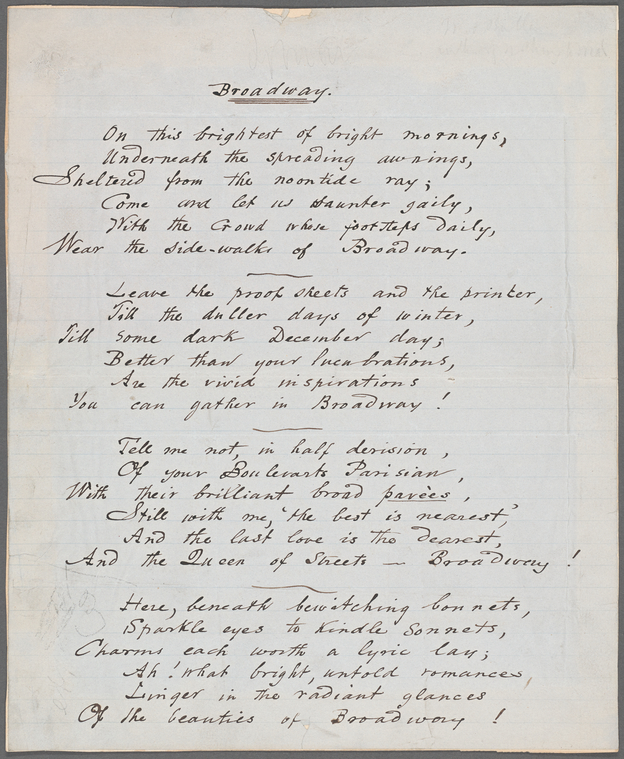 Broadway.
On this brightest of bright mornings,
Underneath the spreading awnings,
Sheltered from the noontide ray;
Come and let us saunter gaily,
With the Crowd whose footsteps daily,
Wear the side-walks of Broadway.
Leave the proof sheets and the printer,
Till the duller days of winter,
Till some dark December day;
Better than your lucubrations,
Are the vivid inspirations
You can gather in Broadway!
Tell me not, in half derision,
Of your Boulevarts Parisian,
With their brilliant broad pavèes,
Still with me, 'the best is nearest,'
And the last love is the dearest,
And the Queen of Streets — Broadway!
Here, beneath bewitching bonnets,
Sparkle eyes to kindle Sonnets,
Charms each worth a lyric lay;
Ah! what bright, untold romances,
Linger in the radiant glances
Of the beauties of Broadway!